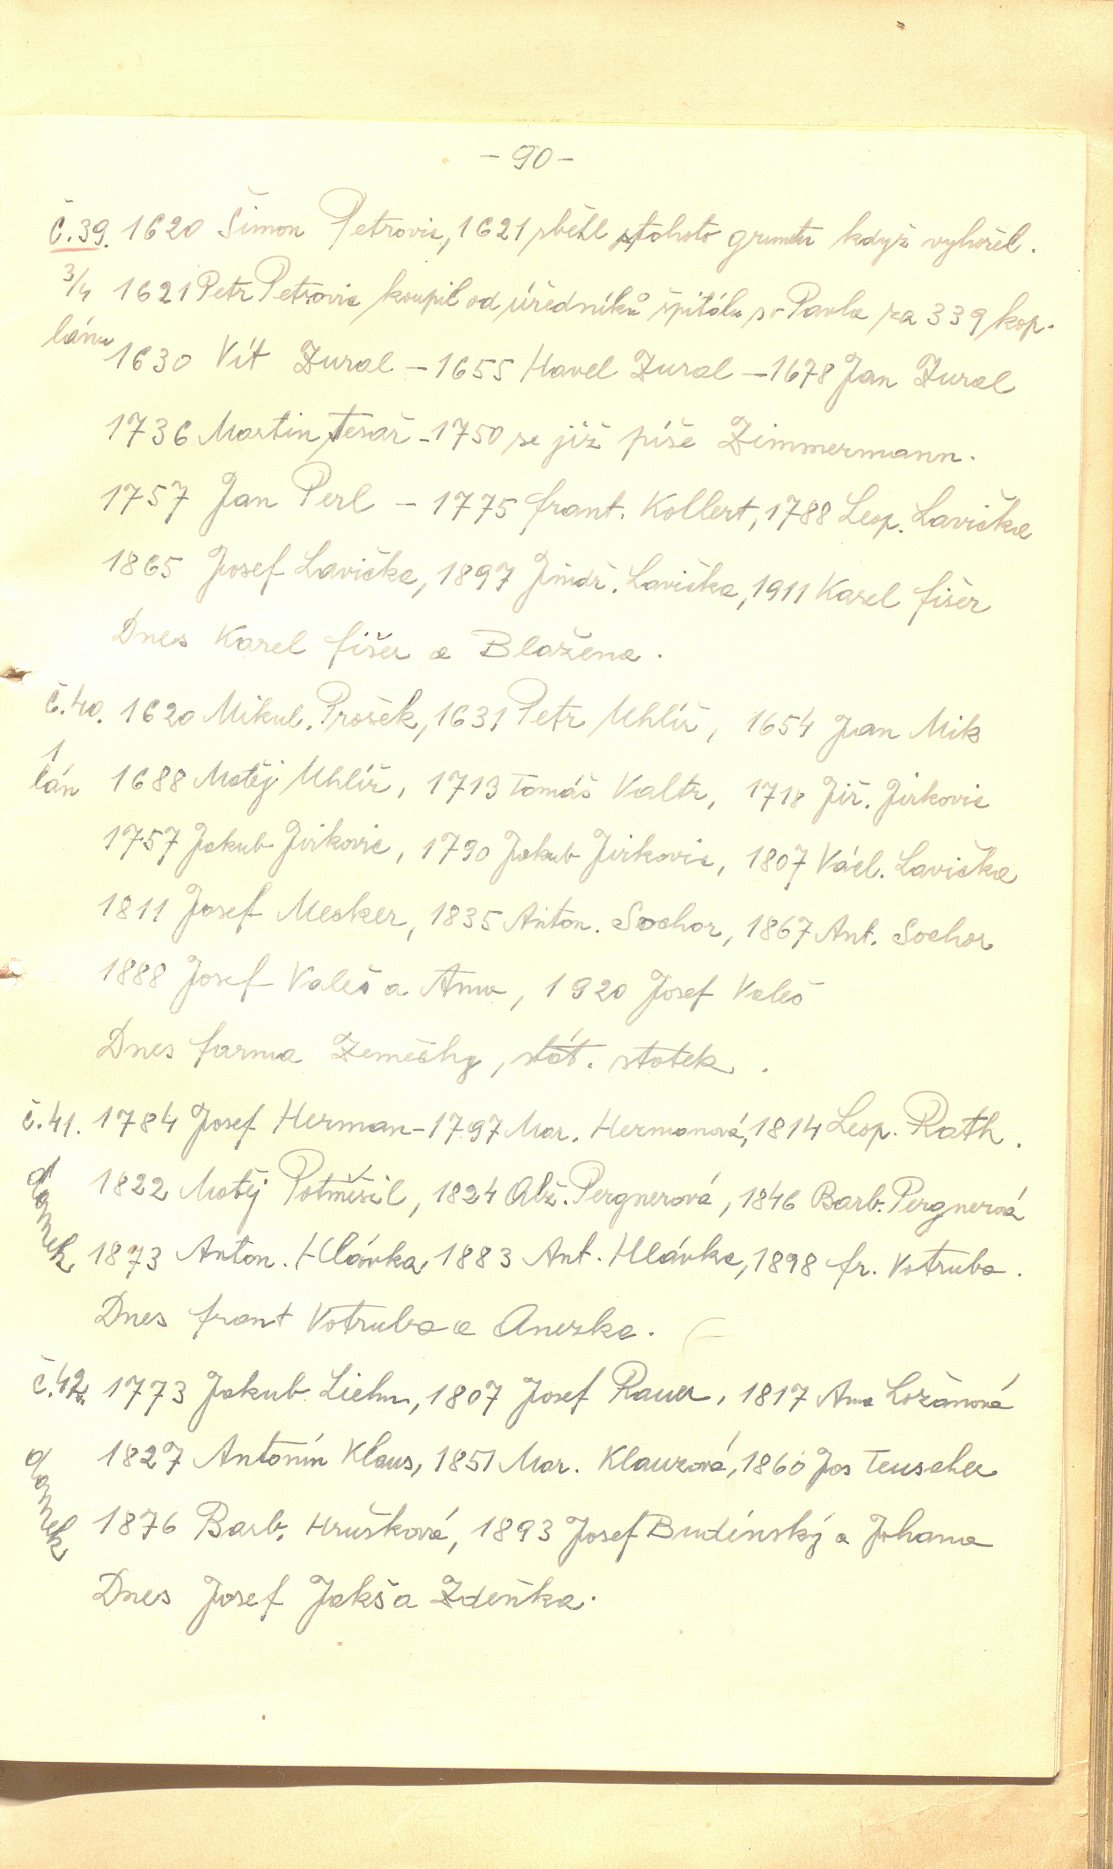 - 90 -
č.39. 1620 Šimon Petrovic, 1621 sběžl z tohoto gruntu když vyhořel.
3/4 1621 Petr Petrovic koupil od úředníků špitálu sv. Pavla za 339 kop.
lánu 1630 Vít Zural - 1655 Havel Zural - 1678 Jan Zural
1736 Martin Tesař - 1750 se již píše Zimmermann.
1757 Jan Perl - 1775 Frant. Kollert, 1788 Leop. Lavička
1865 Josef Lavička, 1897 Jindř. Lavička, 1911 Karel Fišer
Dnes Karel Fišer a Blažena.
č.40. 1620 Mikul. Prošek, 1631 Petr Uhlíř, 1654 Jan Mik
1 lán 1688 Matěj Uhlíř, 1713 Tomáš Valtr, 1718 Jiř. Jirkovic
1757 Jakub Jirkovic, 1790 Jakub Jirkovic, 1807 Václ. Lavička
1811 Josef Mecker, 1835 Anton. Sochor, 1867 Ant. Sochor
1888 Josef Valeš a Anna, 1920 Josef Valeš
Dnes farma Zeměchy, stát. statek.
č.41. 1784 Josef Herman - 1797 Mar. Hermanová, 1814 Leop. Rath.
domek 1822 Matěj Potměšil, 1824 Alž. Pergnerová, 1846 Barb. Pergnerová
1873 Anton. Hlávka, 1883 Ant. Hlávka, 1898 Fr. Votruba.
Dnes Frant Votruba a Anezka.
č.42. 1773 Jakub Liehm, 1807 Josef Rauer, 1817 Anna Ložanová
domek 1827 Antonín Klaus, 1851 Mar. Klauzová, 1860 Jos Teuscher
1876 Barb. Hrušková, 1893 Josef Budínský a Johana
Dnes Josef Jakš a Zdeňka.